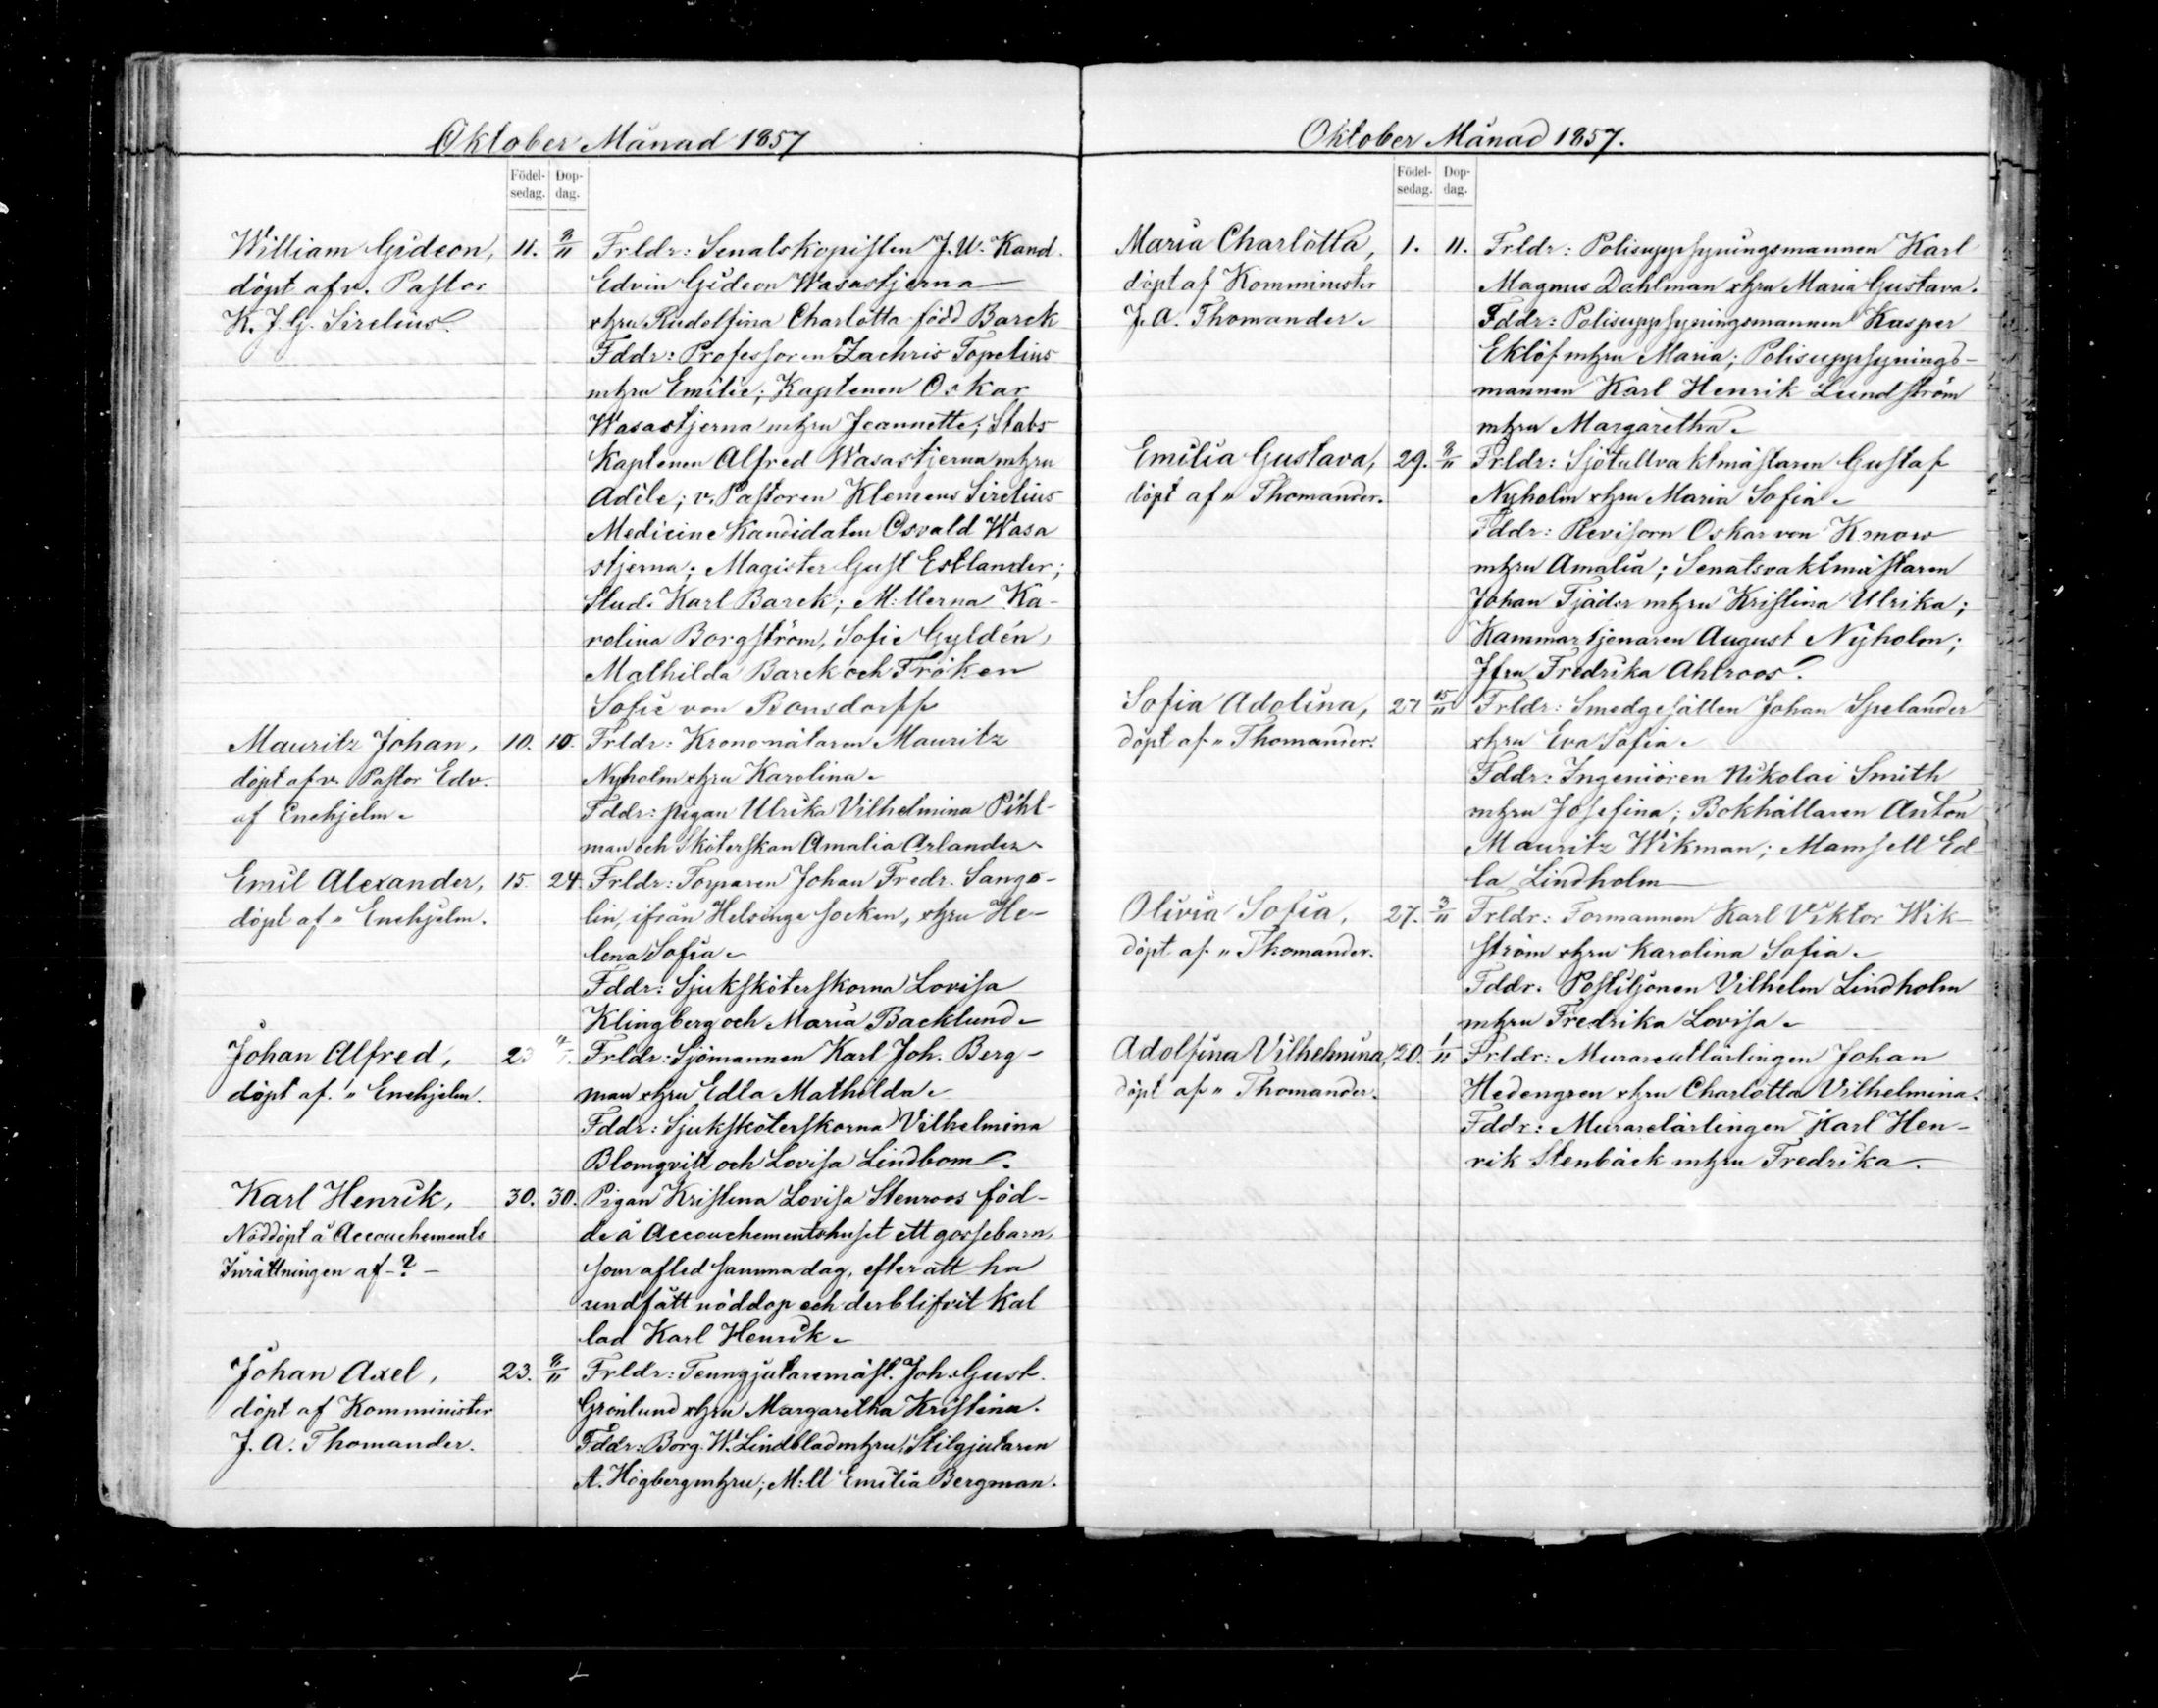 Oktober Månad 1857
Födel- Dop-
sedag. dag.
William Gideon, 11. 8/11 Frldr: Senatskopisten J. U. Kand.
döpt af v. Pastor Edvin Gideon Wasastjerna
K. J. G. Sirelius. o hru Rudolfina Charlotta född Barck
Fddr: Professoren Zachris Topelius
m hru Emilie; Kaptenen Oskar
Wasastjerna m hru Jeannette; Stabs
Kaptenen Alfred Wasastjerna m hru
Adèle; v. Pastoren Klemens Sirelius
Medicine Kandidaten Osvald Wasa
stjerna; Magister Gust Estlander;
Stud. Karl Barck; M:llerna Ka-
rolina Borgström, Sofie Gyldén,
Mathilda Barck och Fröken
Sofie von Bonsdorff
Mauritz Johan, 10. 10. Frldr: Krononätaren Mauritz
döpt af v. Pastor Edv. Nyholm o hru Karolina.
af Enehjelm. Fddr: pigan Ulrika Vilhelmina Pihl-
man och Sköterskan Amalia Arlander.
Emil Alexander, 15. 24. Frldr: Torparen Johan Fredr. Sango-
döpt af " Enehjelm. lin, ifrån Helsinge socken, o hru He-
lena Sofia.
Fddr: Sjuksköterskorna Lovisa
Klingberg och Maria Backlund.
Johan Alfred, 23 Frldr: Sjömannen Karl Joh. Berg-
döpt af " Enehjelm. man o hru Edla Mathilda.
Fddr: Sjuksköterskorna Vilhelmina
Blomqvist och Lovisa Lindbom.
Karl Henrik, 30. 30. Pigan Kristina Lovisa Stenroos föd-
Nöddöpt å Accouchements de å Accouchementshuset ett gossebarn,
Inrättningen af -?- som afled samma dag, efter att ha
undfått nöddop och derblifvit Kal
lad Karl Henrik.
Johan Axel, 23. 8/11 Frldr: Tenngjutaremäst. Joh. Gust.
döpt af Komminister Grönlund o hru Margaretha Kristina.
J. A. Thomander. Fddr: Borg. W. Lindblad m hru; Stilgjutaren
A. Högberg m hru; M:ll Emilia Bergman.
Oktober Månad 1857.
Födel- Dop-
sedag. dag.
Maria Charlotta, 1. 11. Frldr: Polisuppsyningsmannen Karl
döpt af Komminister Magnus Dahlman o hru Maria Gustava.
J. A. Thomander. Fddr: Polisuppsyningsmannen Kasper
Eklöf m hru Maria; Polisuppsynings-
mannen Karl Henrik Lundström
m hru Margaretha.
Emilia Gustava, 29. 8/11 Frldr: Sjötullvaktmästaren Gustaf
döpt af " Thomander. Nyholm o hru Maria Sofia.
Fddr: Revisorn Oskar von
m hru Amalia; Senatsvaktmästaren
Johan Tjäder m hru Kristina Ulrika;
Kammartjenaren August Nyholm;
Jfru Fredrika Ahlroos.
Sofia Adolina, 27 15/11 Frldr: Smedgesällen Johan Spelander
döpt af " Thomander. o hru Eva Sofia.
Fddr: Ingeniören Nikolai Smith
m hru Josefina; Bokhållaren Anton
Mauritz Wikman; Mamsell Ed
la Lindholm
Olivia Sofia, 27. 3/11 Frldr: Formannen Karl Viktor Wik-
döpt af " Thomander. ström o hru Karolina Sofia.
Fddr. Postiljonen Vilhelm Lindholm
m hru Fredrika Lovisa.
Adolfina Vilhelmina, 20. 1/11 Frldr: Murarelärlingen Johan
döpt af " Thomander. Hedengren o hru Charlotta Vilhelmina.
Fddr: Murarelärlingen Karl Hen-
rik Stenbäck m hru Fredrika.